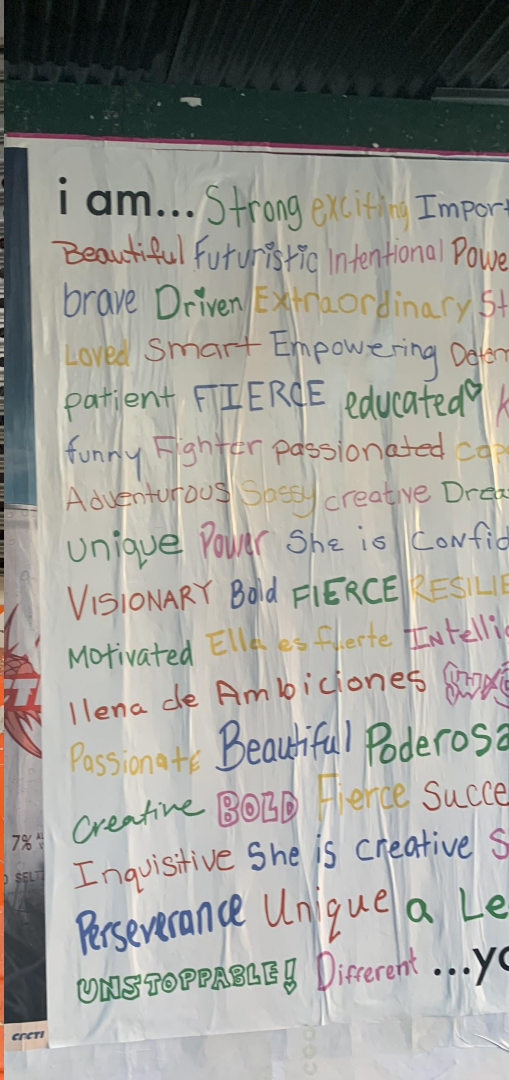 i am... Strong exciting Import
Beautiful Futuristic Intentional Powe
brave Driven Extraordinary St
Loved Smart Empowering Determ
patient FIERCE educated
funny Fighter passionated cap
Adventurous Sassy creative Drea
unique Power She is Confid
VISIONARY Bold FIERCE RESILIE
Motivated Ella es fuerte Intellig
llena de Ambiciones
Passionate Beautiful Poderosa
Creative BOLD Fierce Succe
Inquisitive She is creative S
Perseverance Unique a Le
UNSTOPPABLE! Different ...yo
7%
SELT